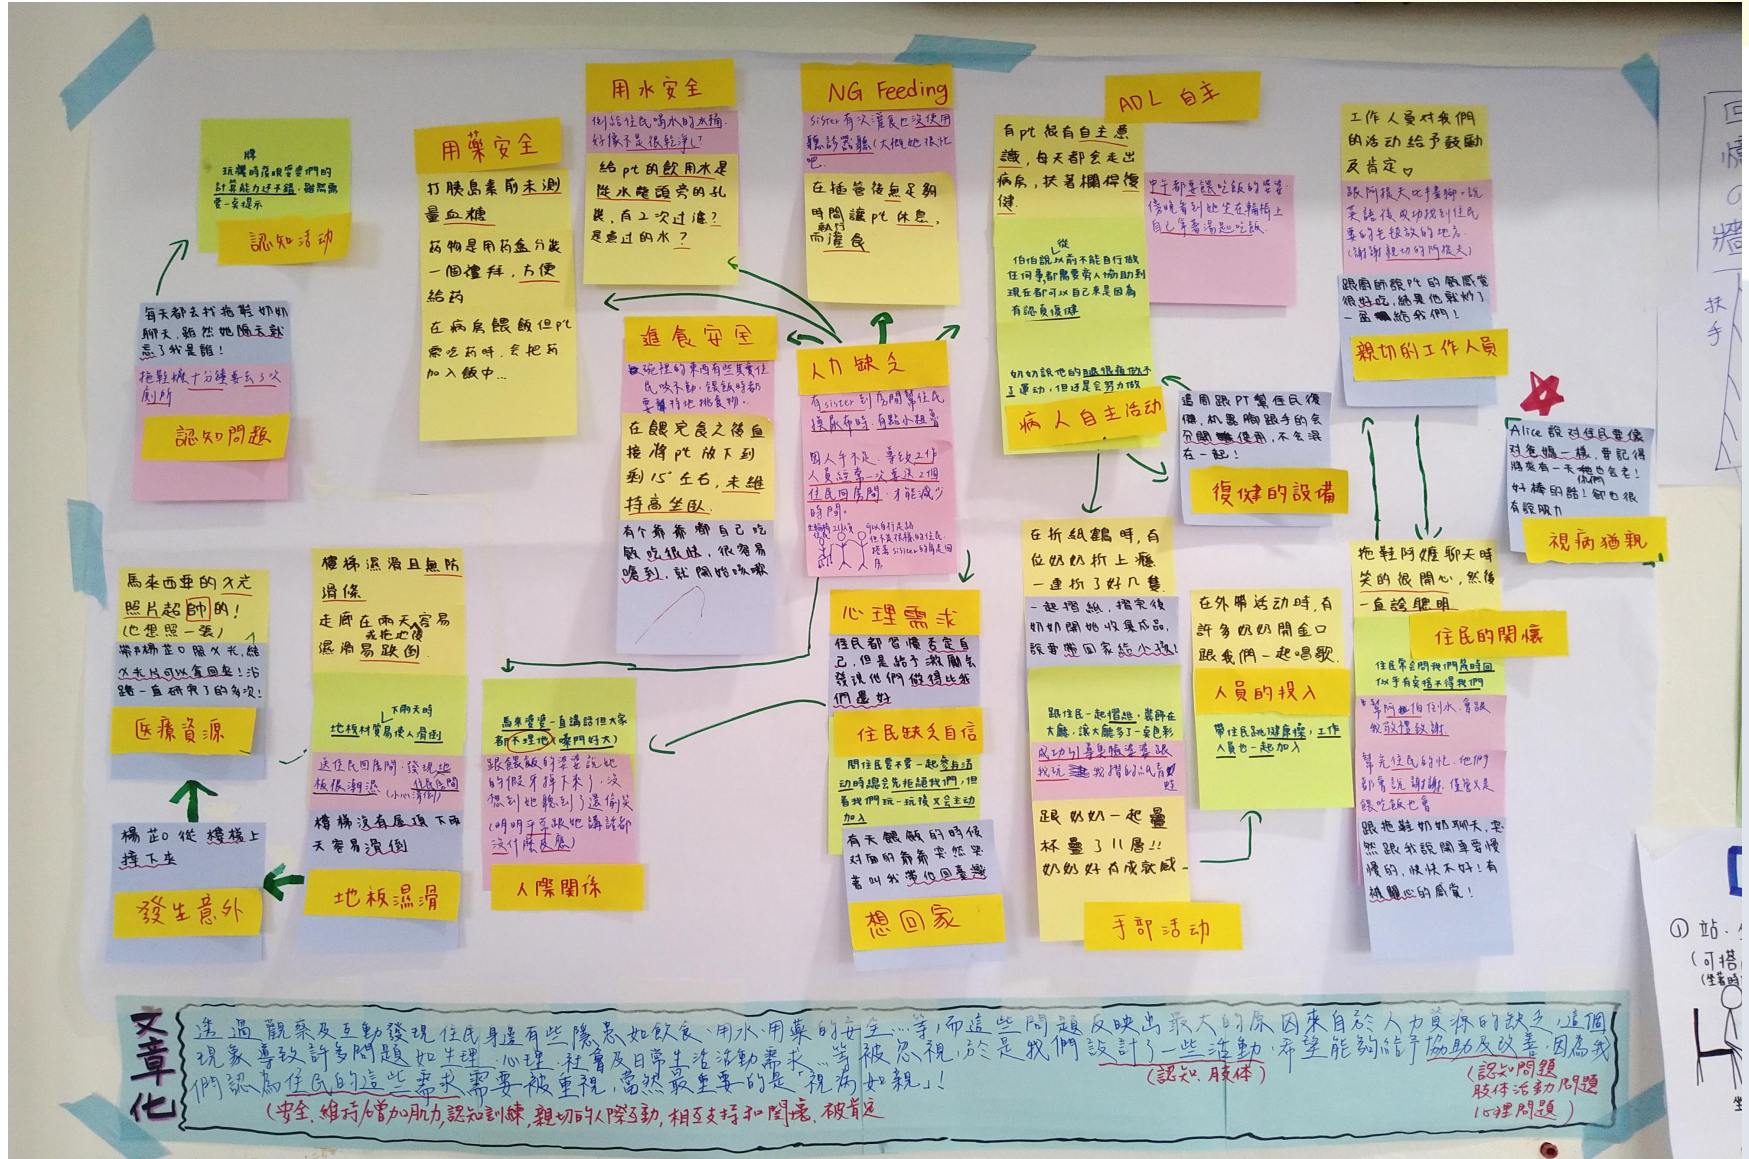 牌
玩樂時發現婆婆們的
計算能力还不錯，雖然需
要一点提示
認知活动
每天都去找拖鞋奶奶
聊天，雖然她隔天就
忘了我是誰！
拖鞋嬤十分鐘要去3次
廁所
認知問題
用藥安全
打胰島素前未測
量血糖
药物是用药盒分裝
一個禮拜，方便
給药
在病房餵飯但pt
需吃药時，会把药
加入飯中...
用水安全
倒給住民喝水的水桶，
好像不是很乾淨！？
給pt的飲用水是
從水龍頭旁的孔
幾，有2次过濾？
是煮过的水？
NG Feeding
sister有次灌食也沒使用
聽診器聽(大概她很忙
吧
在插管後無足夠
時間讓pt休息，
而灌食
ADL 自主
有pt很有自主意
識，每天都会走出
病房，扶著欄桿復
健.
從
伯伯說以前不能自行做
任何事都需要旁人協助到
現在都可以自己來是因為
有認真復健
奶奶說他的腿很痛做不
了運动，但还是会努力做
病人自主活动
中午都要餵吃飯的婆婆
傍晚看到她坐在輪椅上
自己拿著湯匙吃飯.
工作人員对我們
的活动給予鼓勵
及肯定♡
跟阿提夫比手畫腳+說
英語後成功找到住民
要的毛毯放的地方.
(謝謝親切的阿提夫)
跟廚師說pt的飯感覺
很好吃，結果他就炒了
一盘給我們！
親切的工作人員
進食安全
碗裡的東西有些其實住
民咬不動，餵飯時都
要特地挑食物.
在餵完食之後直
接將pt放下到
剩15°左右，未維
持高坐臥.
有个爺爺都自己吃
飯吃很快，很容易
嗆到，就開始咳嗽
人力缺乏
有sister到房間幫住民
換尿布時，有點小粗魯
因人手不足，導致工作
人員經常一次要送2個
住民回房間，才能減少
時間。
可以自行走路
但不是很穩的住民.
這周跟PT幫住民復
健，机器腳跟手的会
分開使用，不会混
在一起！
復健的設備
Alice說对住民要像
对爸媽一樣，要記得
將來有一天他也会老！
好棒的話！卻也很
有說服力
視病猶親
馬來西亞的X光
照片超帥的！
(也想照一張)
帶楊芷O照X光，結
X光片可以拿回來！沿
路一直研究了好多次！
医療資源
楊芷O從樓梯上
摔下來
發生意外
樓梯濕滑且無防
滑條
走廊在雨天容易
或拖地後
濕滑易跌倒.
下雨天時
地板材質易使人滑倒
送住民回房間，發現地
板很潮濕 住民房間
(小心滑倒)
樓梯沒有屋頂下雨
天容易滑倒
地板濕滑
馬來婆婆一直講話但大家
都不理他(嗓門好大)
跟餵飯的婆婆說她
的假牙掉下來了，沒
想到她聽到了還偷笑
(明明平常跟她講話都
沒什麼反應)
人際関係
心理需求
住民都習慣否定自
己，但是給予激勵会
發現他們做得比我
們還好
住民缺乏自信
問住民要不要一起參与活
动時總会先拒絕我們，但
看我們玩一玩後又会主动
加入
有天餵飯的時候
对面的爺爺突然哭
著叫我帶他回臺灣
想回家
在折紙鶴時，有
位奶奶折上癮
一連折了好几隻.
一起摺紙，摺完後
奶奶開始收集成品，
說要帶回家給小孩！
跟住民一起摺紙，裝飾在
大廳，讓大廳多了一点色彩
跟奶奶一起疊
杯疊了11層！！
奶奶好有成就感~
手部活动
在外帶活动時，有
許多奶奶開金口
跟我們一起唱歌.
人員的投入
帶住民跳健康操，工作
人員也一起加入
拖鞋阿嬤聊天時
笑的很開心，然後
一直誇聰明
住民的関懷
住民常会問我們幾時回
似乎有点捨不得我們
幫阿伯倒水，會跟
我敬禮致謝
幫完住民的忙，他們
都會說謝謝，僅管只是
餵吃飯也會
跟拖鞋奶奶聊天，突
然跟我說開車要慢
慢的，快快不好！有
被関心的感覺！
回憶の牆
扶手
① 站.
(可搭
文章化
透過觀察及互動發現住民身邊有些隱患如飲食、用水、用藥的安全...等，而這些問題反映出最大的原因來自於人力資源的缺乏，這個
現象導致許多問題如生理、心理、社會及日常生活活動需求...等被忽視，於是我們設計了一些活動，希望能夠給予協助及改善，因為我
們認為住民的這些需求需要被重視，當然最重要的是「視病如親」！
(認知、肢体)
(認知問題
肢体活動問題
心理問題)
(安全、維持/增加肌力，認知訓練，親切的人際互動，相互支持和関懷、被肯定